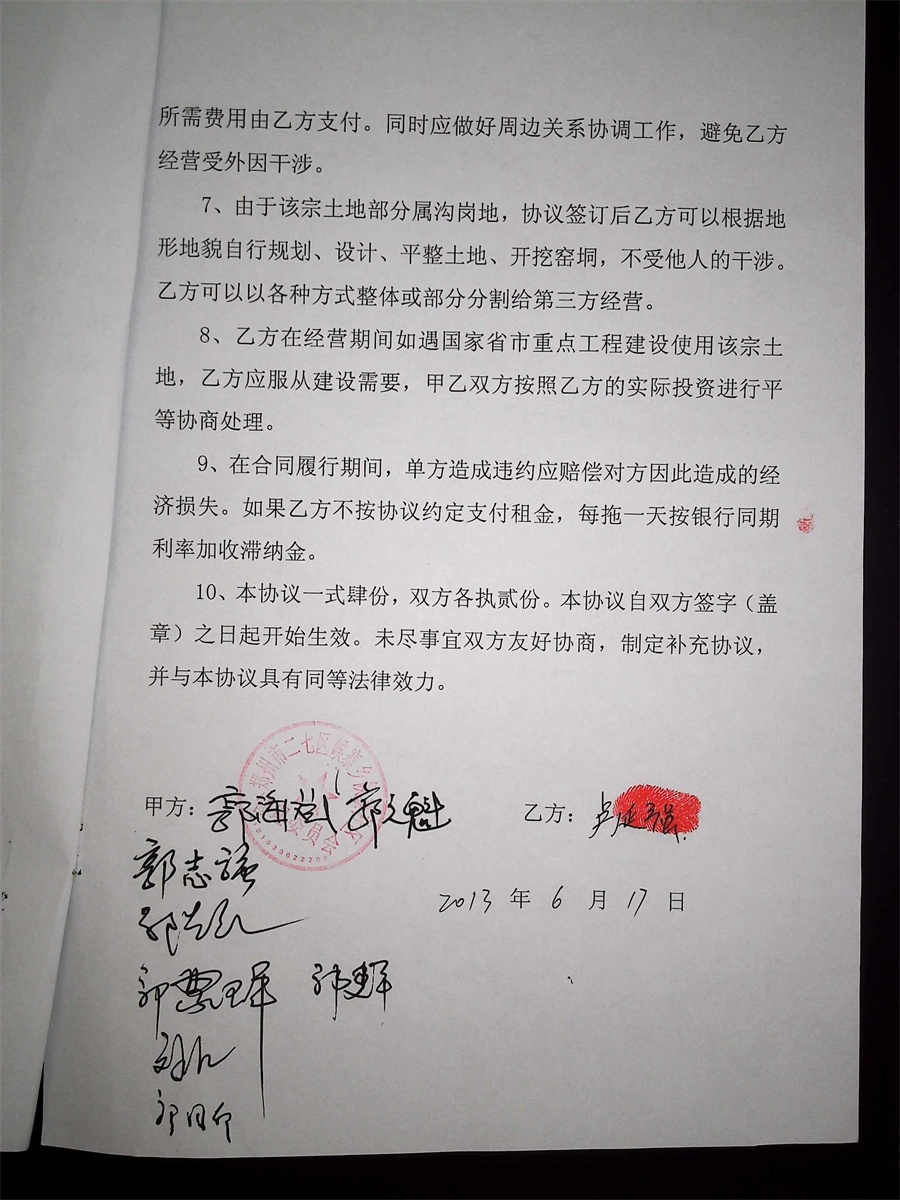 所需费用由乙方支付。同时应做好周边关系协调工作，避免乙方
经营受外因干涉。
7、由于该宗土地部分属沟岗地，协议签订后乙方可以根据地
形地貌自行规划、设计、平整土地、开挖窑垌，不受他人的干涉。
乙方可以以各种方式整体或部分分割给第三方经营。
8、乙方在经营期间如遇国家省市重点工程建设使用该宗土
地，乙方应服从建设需要，甲乙双方按照乙方的实际投资进行平
等协商处理。
9、在合同履行期间，单方造成违约应赔偿对方因此造成的经
济损失。如果乙方不按协议约定支付租金，每拖一天按银行同期
利率加收滞纳金。
10、本协议一式肆份，双方各执贰份。本协议自双方签字（盖
章）之日起开始生效。未尽事宜双方友好协商，制定补充协议，
并与本协议具有同等法律效力。
郑州市二七区侯寨乡
委员会
甲方：
乙方：
郭志强
2013 年 6 月 17 日